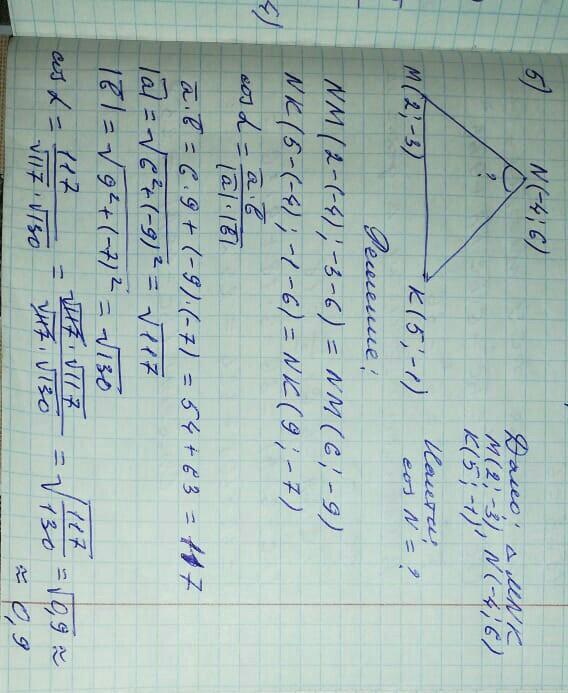 б)
N(-4; 6)
?
M(2; -3)
K(5; -1)
Дано: △ MNK
M(2; -3), N(-4; 6)
K(5; -1),
Найти:
cos N = ?
Решение:
NM(2-(-4); -3-6) = NM(6; -9)
NK(5-(-4); -1-6) = NK(9; -7)
cos α = a̅·b̅ / |a̅|·|b̅|
a̅·b̅ = 6·9 + (-9)·(-7) = 54 + 63 = 117
|a̅| = √(6² + (-9)²) = √117
|b̅| = √(9² + (-7)²) = √130
cos α = 117 / √117·√130 = √117·√117 / √117·√130 = √(117/130) = √0,9 ≈
≈ 0,9